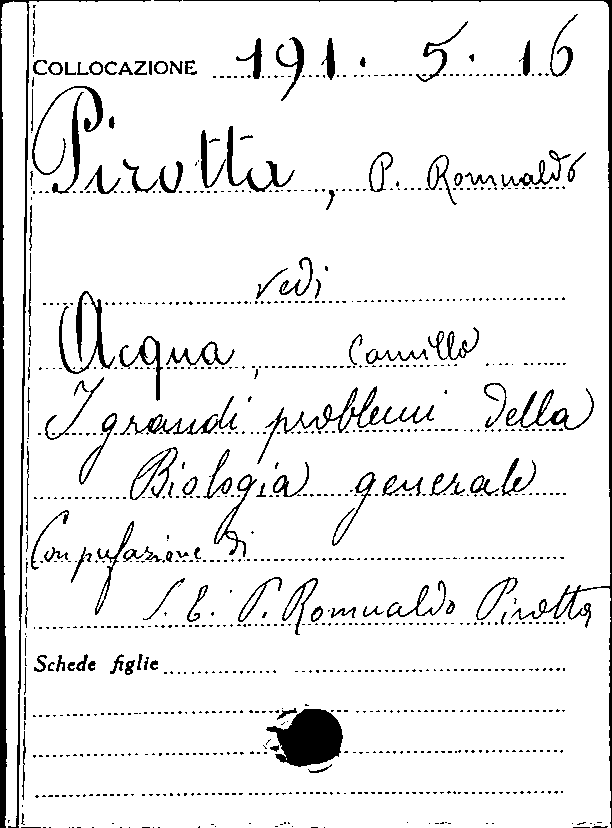 COLLOCAZIONE 191. 5. 16
Pirotta, P. Romualdo
vedi
Acqua, Camillo
I grandi problemi della
Biologia generale
Con prefazione di
S. E. P. Romualdo Pirotta
Schede figlie